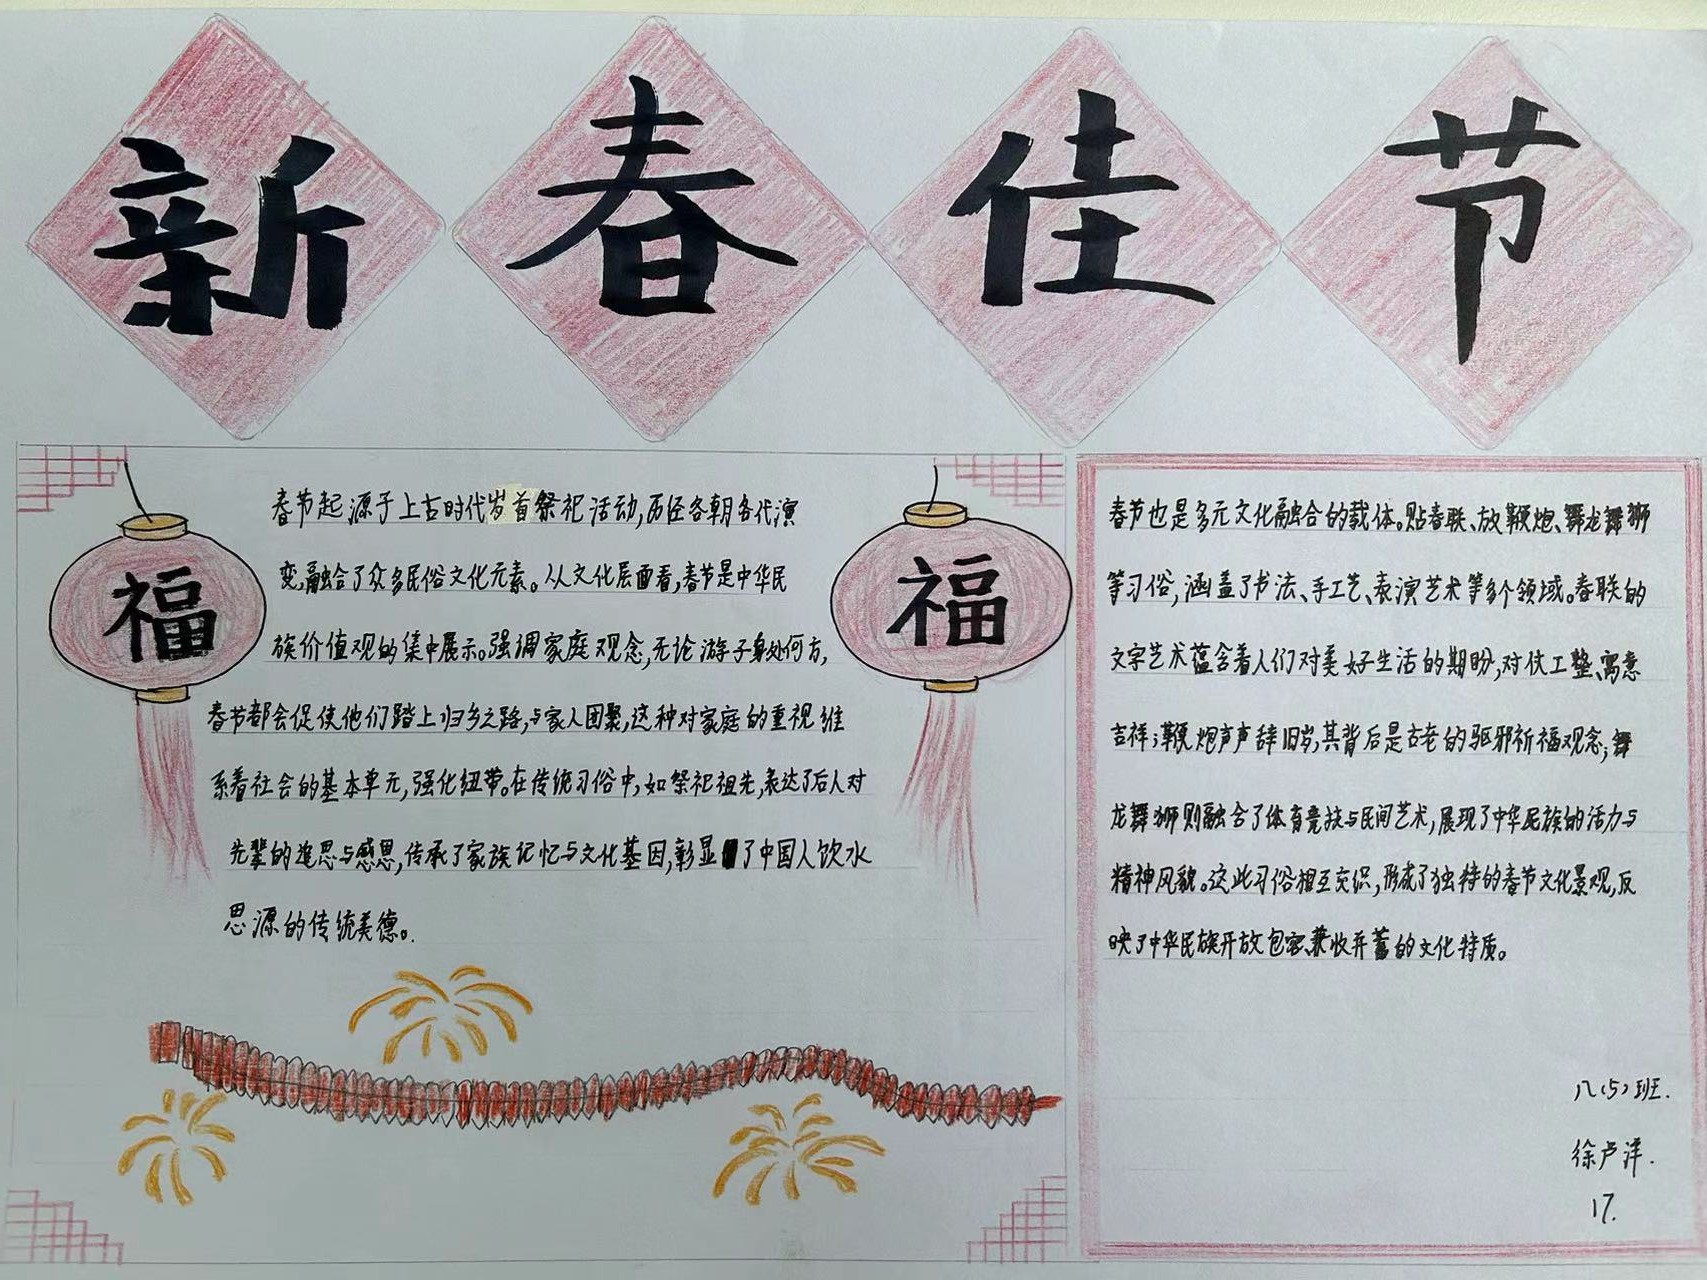 新春佳节
福
福
春节起源于上古时代岁首祭祀活动,历经各朝各代演
变,融合了众多民俗文化元素。从文化层面看,春节是中华民
族价值观的集中展示。强调家庭观念,无论游子身处何方,
春节都会促使他们踏上归乡之路,与家人团聚,这种对家庭的重视维
系着社会的基本单元,强化纽带。在传统习俗中,如祭祀祖先,表达了后人对
先辈的追思与感恩,传承了家族记忆与文化基因,彰显了中国人饮水
思源的传统美德。
春节也是多元文化融合的载体。贴春联、放鞭炮、舞龙舞狮
等习俗,涵盖了书法、手工艺、表演艺术等多个领域。春联的
文字艺术蕴含着人们对美好生活的期盼,对仗工整、寓意
吉祥;鞭炮声声辞旧岁,其背后是古老的驱邪祈福观念;舞
龙舞狮则融合了体育竞技与民间艺术,展现了中华民族的活力与
精神风貌。这些习俗相互交织,形成了独特的春节文化景观,反
映了中华民族开放包容、兼收并蓄的文化特质。
八(5)班.
徐卢洋.
17.